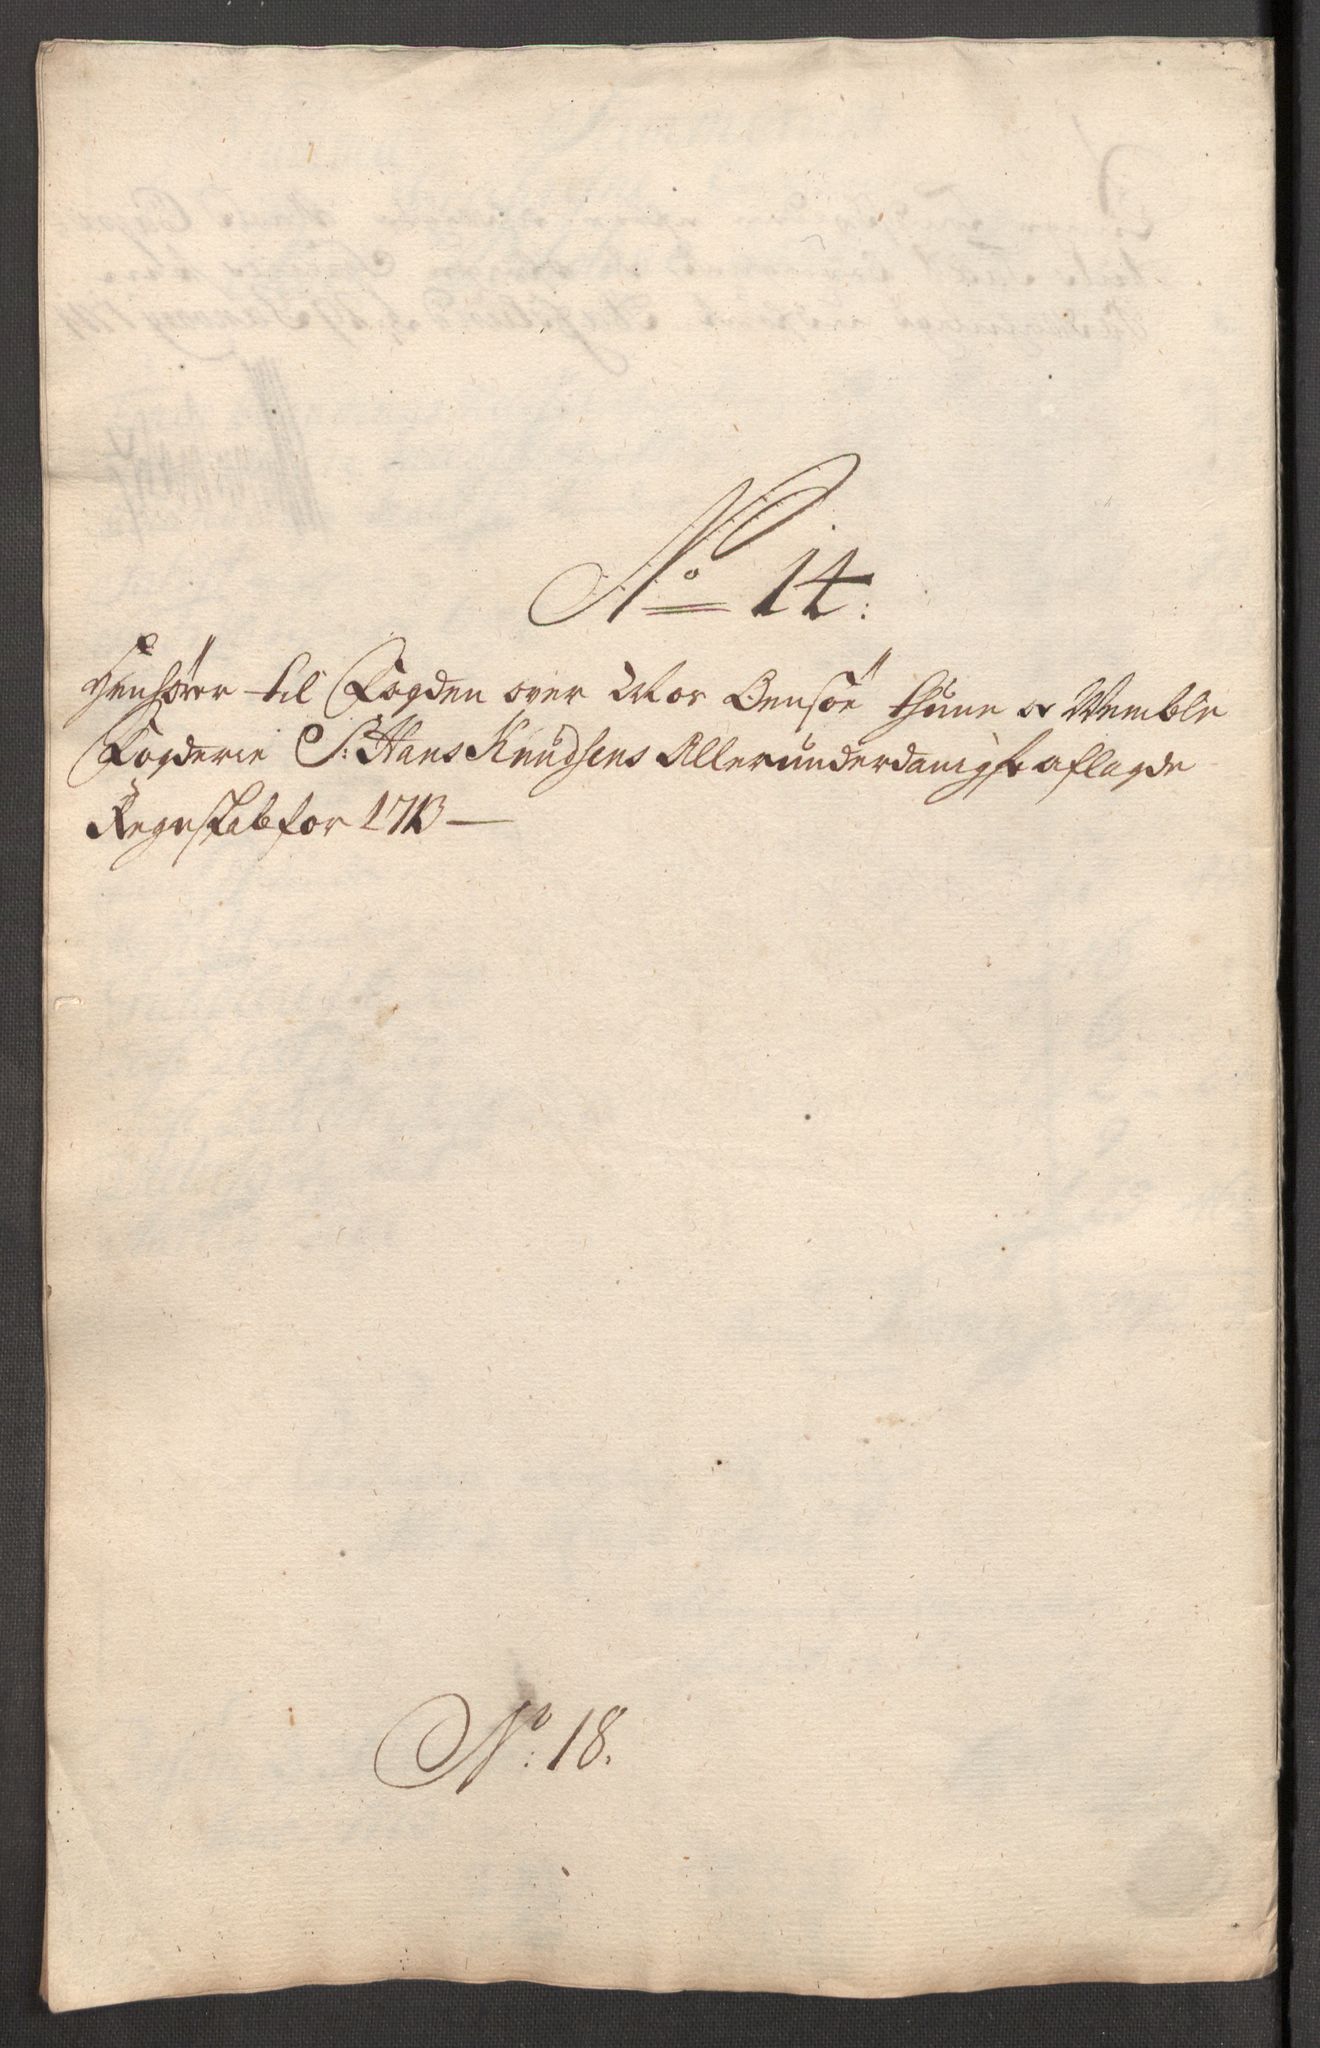 No 14:
Henhörer til Fogden over Mos Oensöe thune og Wemble
Fogderie S: Hans Knudsens Allerunderdanigst aflagde
Regnskab for 1713 —
No: 18.